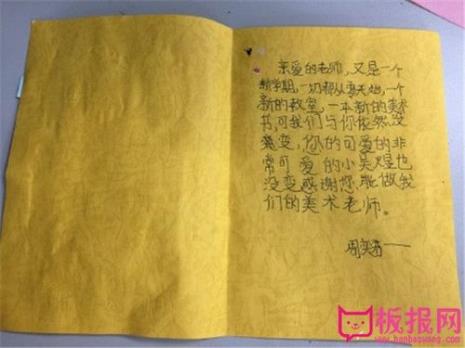 亲爱的老师，又是一个
新学期，一切都从零开始，一个
新的教室，一本新的美术
书，可我们与你依然没
变，您的可爱的非
常可爱的小吴煜也
没变感谢您，能做我
们的美术老师。
板报网
www.banbaowang.com